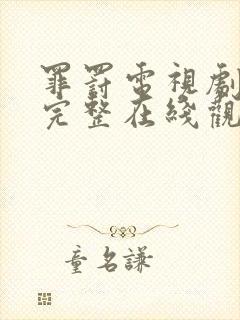 罪罰電視劇
完整在綫觀
童名謙